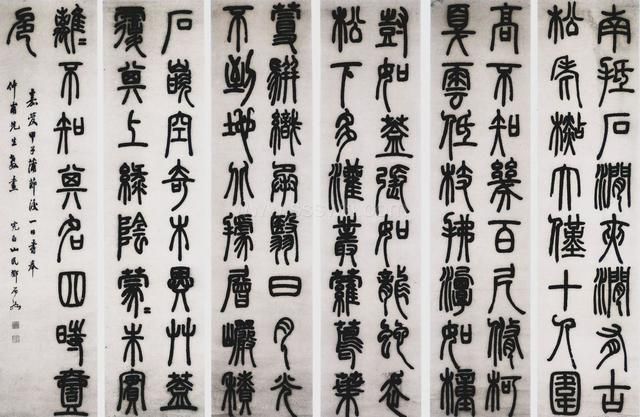 南抵石澗夾澗有古
松老杉大僅十人圍
高不知幾百尺脩柯
戛雲低枝拂潭如幢
尌如蓋張如龍蛇走
松下多灌叢蘿蔦葉
蔓駢織承翳日月光
不到地北據層巖積
石嵌空奇木異艸蓋
覆其上綠陰蒙〻朱實
離〻不知其名四時壹
色
嘉慶甲子蒲節後一日書奉
仲甫先生教畫
完白山民鄧石如